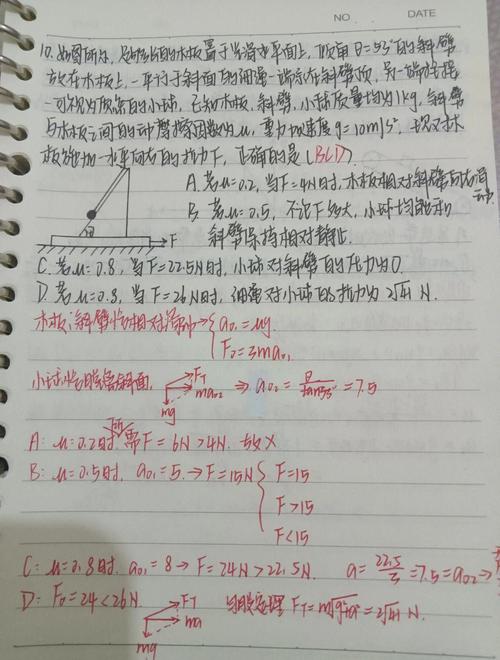 NO
DATE
10. 如图所示, 足够长的木板置于光滑水平面上, 倾角θ=53°的斜劈
放在木板上, 一平行于斜面的细绳一端系在斜劈顶, 另一端拴接
一可视为质点的小球, 已知木板、斜劈、小球质量均为1kg, 斜劈
与木板之间的动摩擦因数为μ, 重力加速度g=10m/s², 现对木
板施加一水平向右的拉力F, 正确的是(BCD)
A. 若μ=0.2, 当F=4N时, 木板相对斜劈向右滑
动
B. 若μ=0.5, 不论F多大, 小球均能和
斜劈保持相对静止
θ
F
C. 若μ=0.8, 当F=22.5N时, 小球对斜劈的压力为0.
D. 若μ=0.8, 当F=26N时, 细绳对小球的拉力为2√41 N.
木板、斜劈恰相对滑动 → { a01=μg
F0=3ma01
小球恰脱离斜面
FT
ma02
mg
⇒ a02 = g/tan53° =7.5
A: μ=0.2时, 所需F=6N>4N. 故×
B: μ=0.5时, a01=5. → F=15N { F=15
F>15
F<15
C: μ=0.8时, a01=8 → F=24N>22.5N. a=22.5/3=7.5=a02 →
D: F0=24<26N.
FT
ma
mg
FT=m√g²+a² =2√41 N.